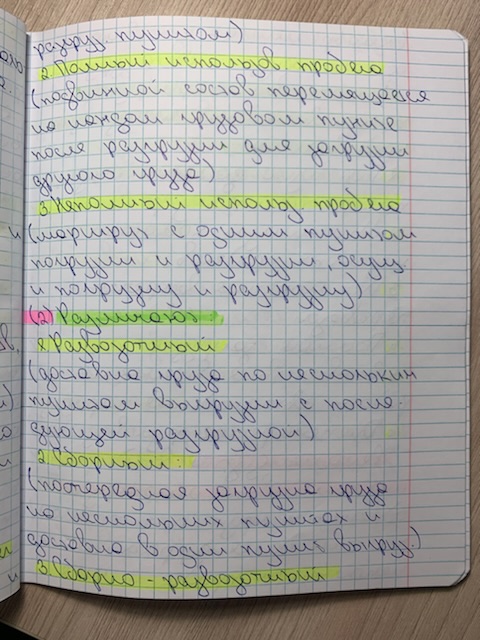 разгруз пунктом)
2 Полный использов пробега
(подвижной состав перемещается
на каждом грузовом пункте
после разгрузки для загрузки
другого груза)
3 Неполный использ пробега
(маршрут с одним пунктом
погрузки и разгрузки, осущ
и погрузку и разгрузку)
(2) Различают
1 Развозочный
(доставка груза по нескольким
пунктам выгрузки с после-
дующей разгрузкой)
2 Сборный:
(поочередная загрузка груза
на нескольких пунктах и
доставка в один пункт выгруз)
3 Сборно - развозочный